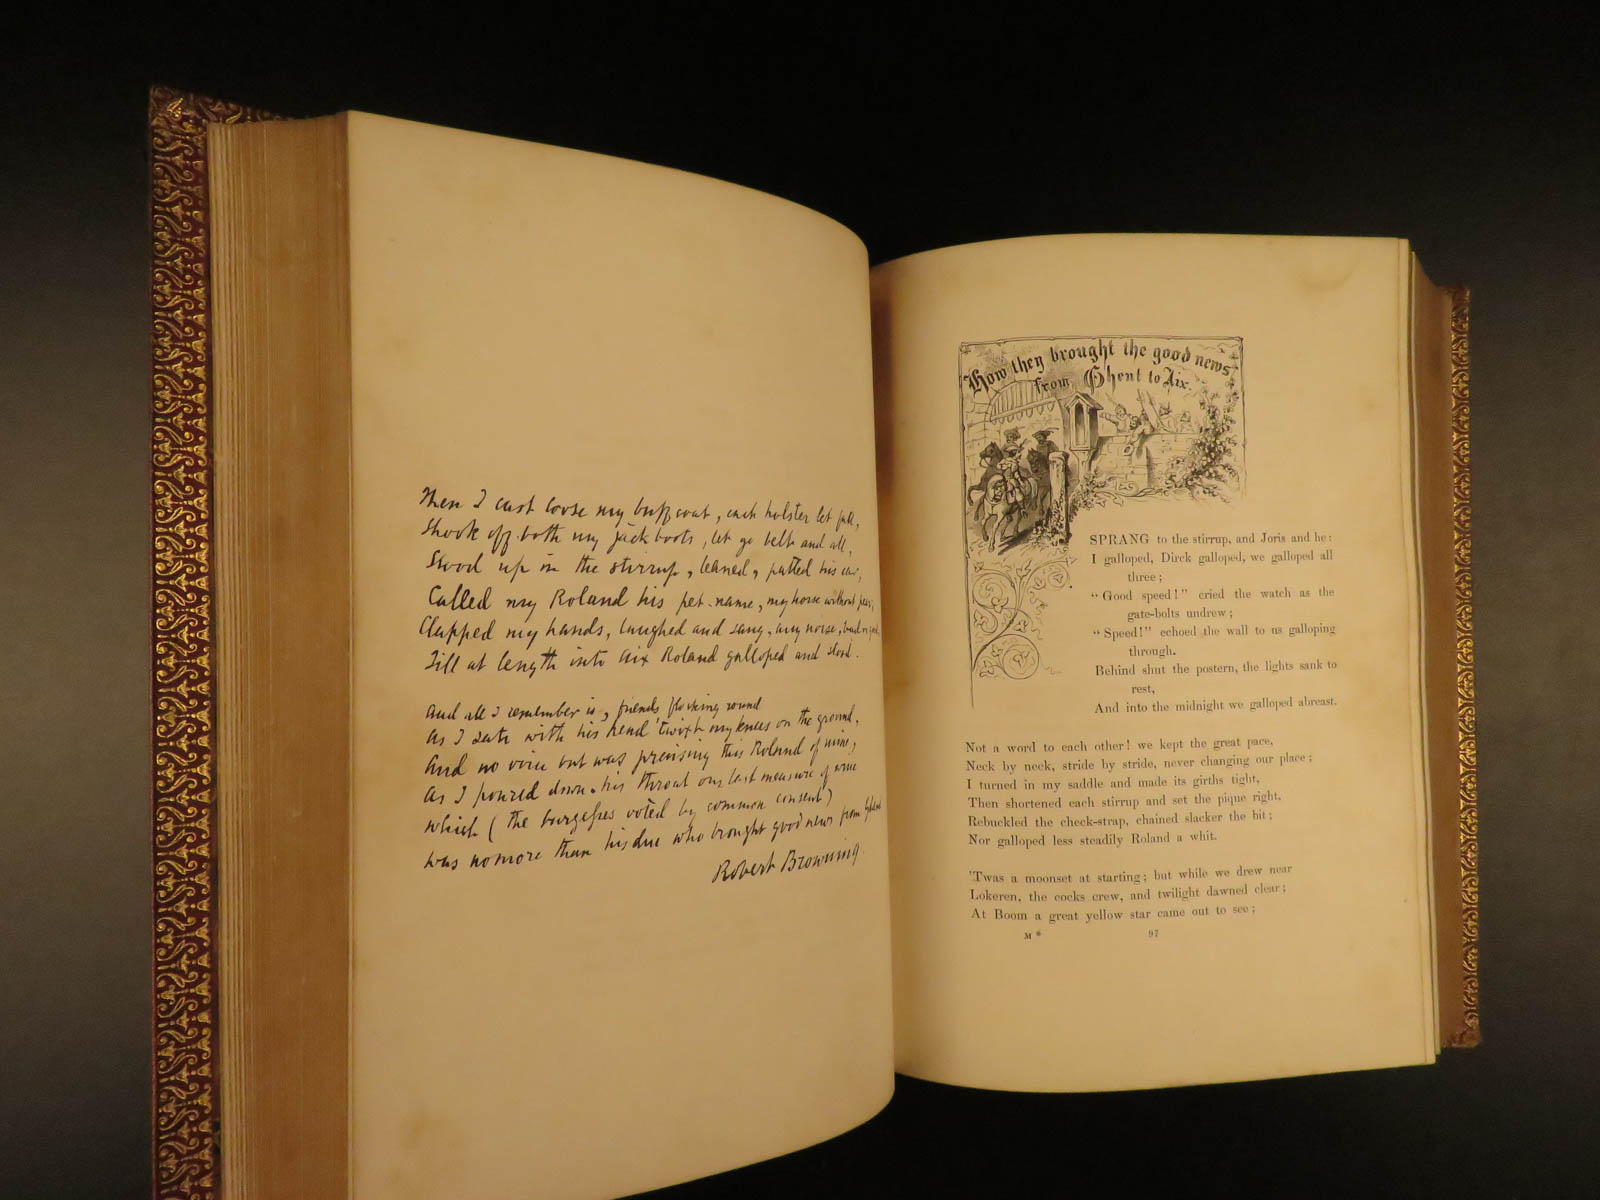 Then I cast loose my buffcoat, each holster let fall,
Shook off both my jack boots, let go belt and all,
Stood up in the stirrup, leaned, patted his ear,
Called my Roland his pet-name, my horse without peer;
Clapped my hands, laughed and sang, any noise, bad or good,
Till at length into Aix Roland galloped and stood.
And all I remember is, friends flocking round
As I sate with his head 'twixt my knees on the ground,
And no voice but was praising this Roland of mine,
As I poured down his throat our last measure of wine
Which (the burgesses voted by common consent)
Was no more than his due who brought good news from
Robert Browning.
How they brought the good news
from Ghent to Aix.
SPRANG to the stirrup, and Joris and he:
I galloped, Dirck galloped, we galloped all
three;
"Good speed!" cried the watch as the
gate-bolts undrew;
"Speed!" echoed the wall to us galloping
through.
Behind shut the postern, the lights sank to
rest,
And into the midnight we galloped abreast.
Not a word to each other! we kept the great pace,
Neck by neck, stride by stride, never changing our place;
I turned in my saddle and made its girths tight,
Then shortened each stirrup and set the pique right,
Rebuckled the check-strap, chained slacker the bit;
Nor galloped less steadily Roland a whit.
'Twas a moonset at starting; but while we drew near
Lokeren, the cocks crew, and twilight dawned clear;
At Boom a great yellow star came out to see;
M*
97